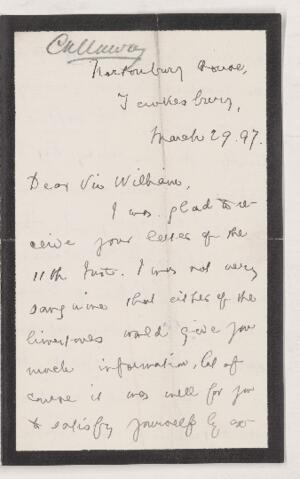 Callaway
Norton bury House,
Tewkesbury,
March 29. 97.
Dear Sir William,
I was glad to re-
ceive your letter of the
11th Inst. I was not very
sanguine that either of the
limestones would give you
much information, but of
course it was well for you
to satisfy yourself by ex-